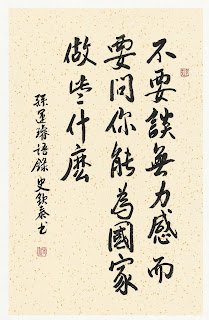 不要談無力感而
要問你能為國家
做些什麼
孫運璿語錄 史欽泰書